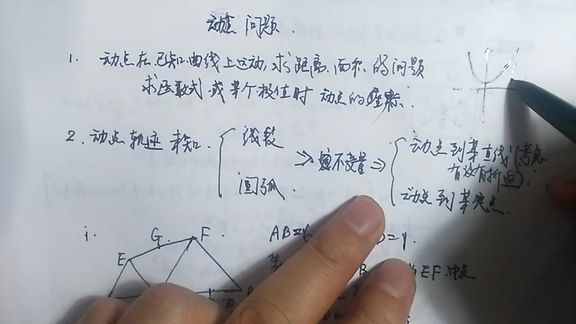 动点问题.
1. 动点在已知曲线上运动,求距离.面积的问题
求函数式或某个极值时动点的坐标.
2. 动点轨迹未知. 线段
圆弧
⇒ 不变量 ⇒
动点到某直线(考虑
有没有折迭):
动点到某定点.
i. G F
E
AB=6 =9.
EF中点